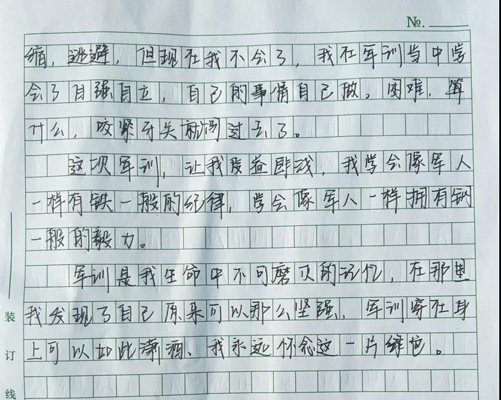 No.
缩，逃避，但现在我不会了，我在军训当中学
会了自强自立，自己的事情自己做。困难，算
什么，咬紧牙关就闯过去了。
这次军训，让我受益匪浅，我学会像军人
一样有铁一般的纪律，学会像军人一样拥有钢
一般的毅力。
军训是我生命中不可磨灭的记忆，在那里
我发现了自己原来可以那么坚强，军训穿在身
上可以如此潇洒、我永远怀念这一片绿色。
装
订
线